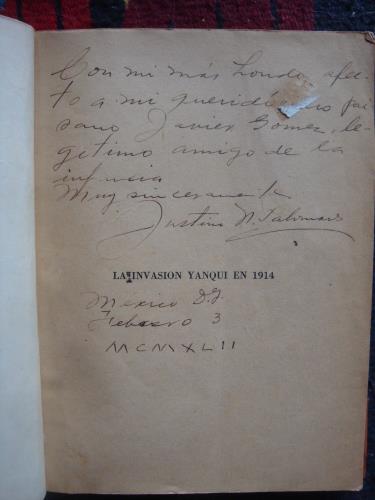 Con mi más hondo afec-
to a mi queridísimo pai-
sano Javier Gomez, le-
gitimo amigo de la
infancia
Muy sinceramente
Justino N. Palomares
LA INVASION YANQUI EN 1914
Mexico D.F.
Febrero 3
MCMXLII